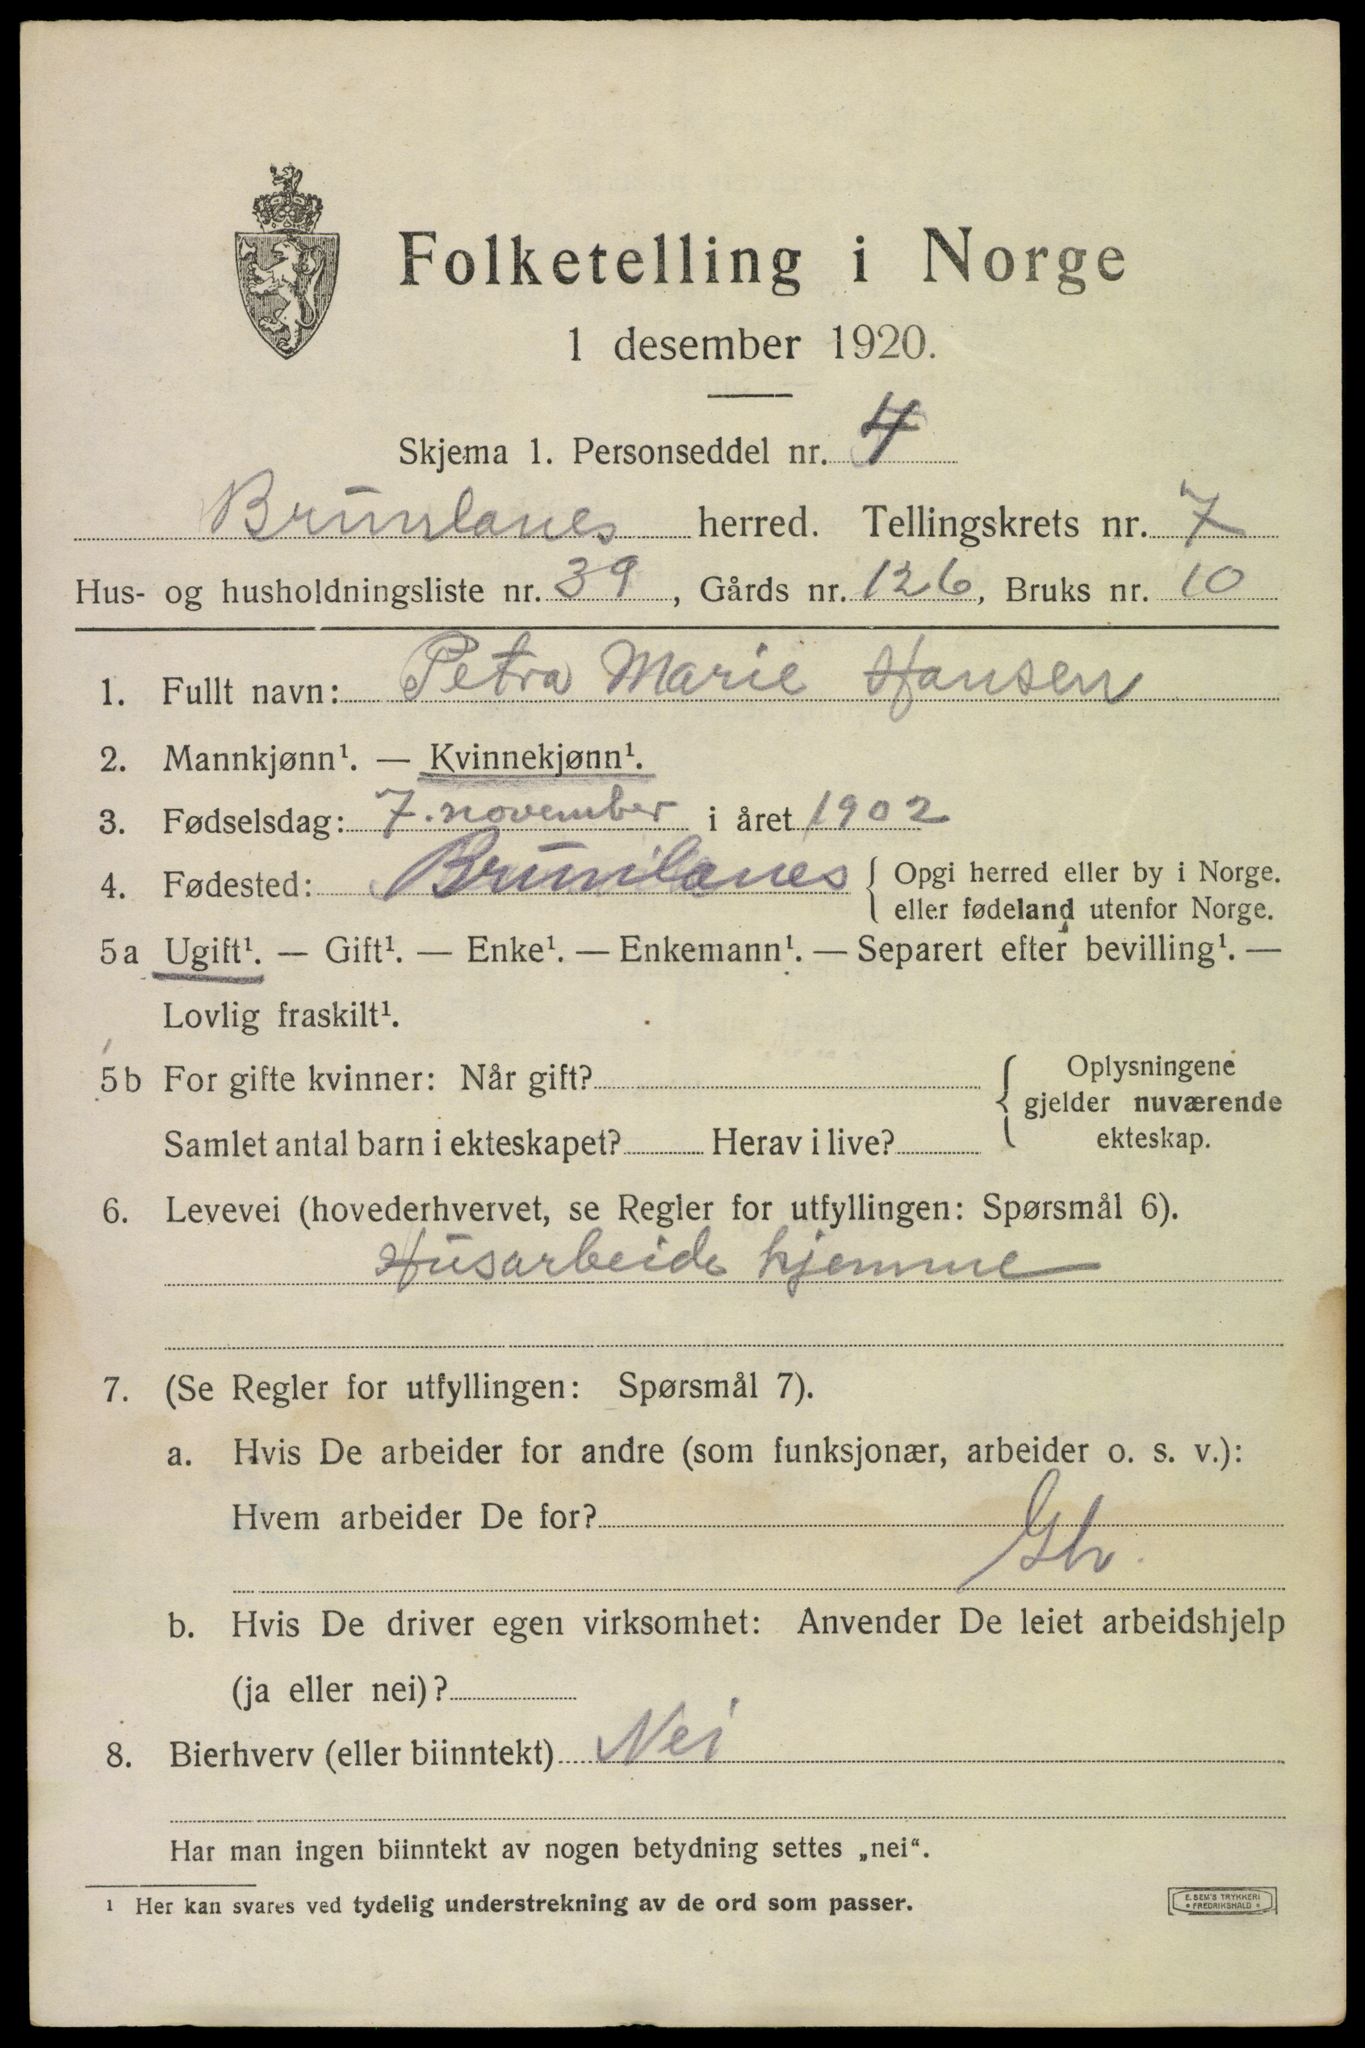 Folketelling i Norge
1 desember 1920.
Skjema 1. Personseddel nr. 4
Brunlanes herred. Tellingskrets nr. 7
Hus- og husholdningsliste nr. 39, Gårds nr. 126, Bruks nr. 10
1. Fullt navn: Petra Marie Hansen
2. Mannkjønn¹. — Kvinnekjønn¹.
3. Fødselsdag: 7. november i året 1902
4. Fødested: Brunlanes { Opgi herred eller by i Norge.
eller fødeland utenfor Norge.
5a Ugift¹. — Gift¹. — Enke¹. — Enkemann¹. — Separert efter bevilling¹. —
Lovlig fraskilt¹.
5b For gifte kvinner: Når gift? { Oplysningene
gjelder nuværende
Samlet antal barn i ekteskapet? Herav i live? ekteskap.
6. Levevei (hovederhvervet, se Regler for utfyllingen: Spørsmål 6).
Husarbeide hjemme
7. (Se Regler for utfyllingen: Spørsmål 7).
a. Hvis De arbeider for andre (som funksjonær, arbeider o. s. v.):
Hvem arbeider De for?
b. Hvis De driver egen virksomhet: Anvender De leiet arbeidshjelp
(ja eller nei)?
8. Bierhverv (eller biinntekt) Nei
Har man ingen biinntekt av nogen betydning settes „nei“.
¹ Her kan svares ved tydelig understrekning av de ord som passer.
E. SEM'S TRYKKERI
• FREDRIKSHALD •